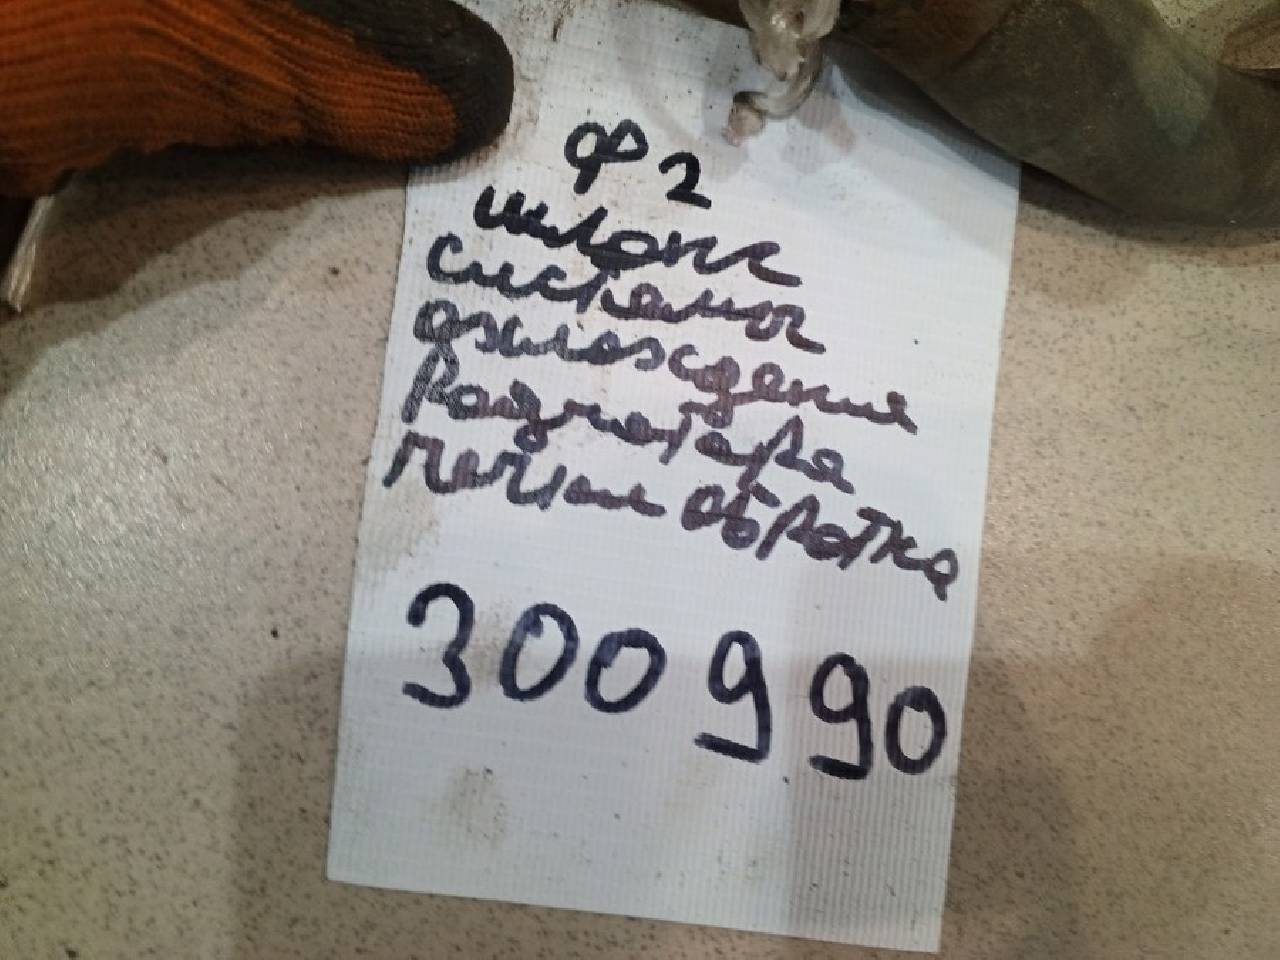 Ф 2
шланг
системы
охлаждения
радиатора
печки обратка
300990